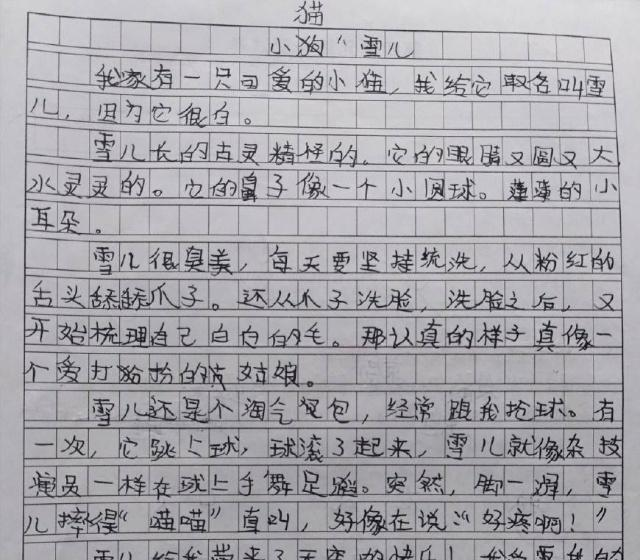 猫
小狗“雪儿
我家有一只可爱的小猫，我给它取名叫雪
儿，因为它很白。
雪儿长的古灵精怪的。它的眼睛又圆又大
水灵灵的。它的鼻子像一个小圆球。薄薄的小
耳朵。
雪儿很臭美，每天要坚持统洗，从粉红的
舌头舔舔爪子。还从爪子洗脸，洗脸之后，又
开始梳理自己白白的毛。那认真的样子真像一
个爱打扮的姑娘。
雪儿还是个淘气包，经常跟我抢球。有
一次，它跳上球，球滚了起来，雪儿就像杂技
演员一样在球上手舞足蹈。突然，脚一滑，雪
儿摔得“喵喵”直叫，好像在说“好疼啊！”
雪儿给我带来了无穷的快乐！我